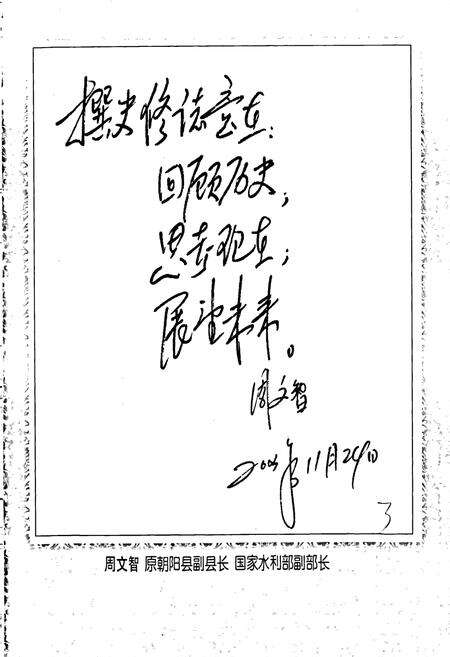 撰史修志意在:
回顾历史;
思考现在;
展望未来。
周文智
11月29日
3
周文智 原朝阳县副县长 国家水利部副部长